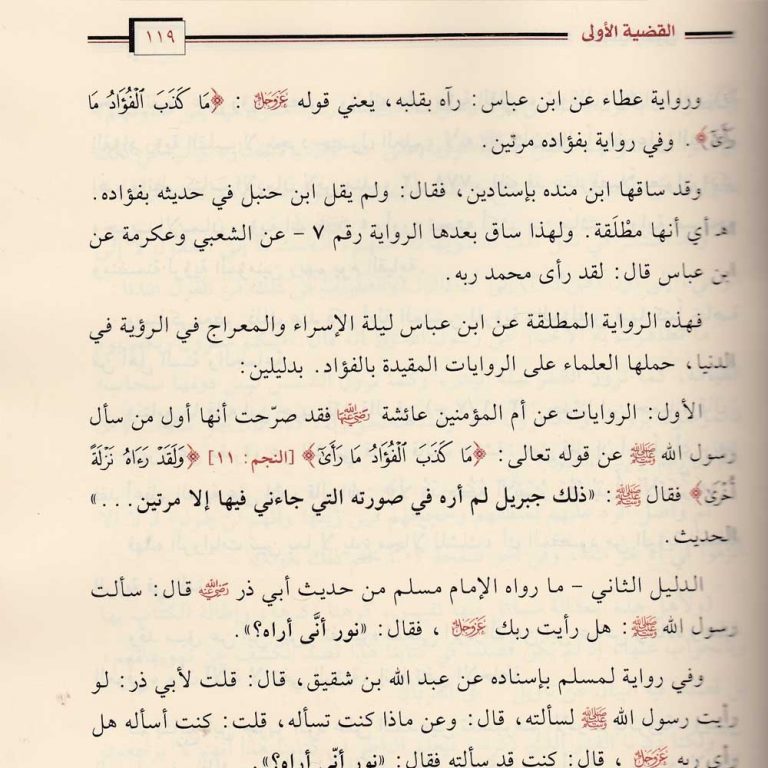 القضية الأولى
١١٩
ورواية عطاء عن ابن عباس: رآه بقلبه، يعني قوله عَزَّوَجَلَّ: ﴿مَا كَذَبَ الْفُؤَادُ مَا
رَأَىٰ﴾. وفي رواية بفؤاده مرتين.
وقد ساقها ابن منده بإسنادين، فقال: ولم يقل ابن حنبل في حديثه بفؤاده.
هـ أي أنها مطْلَقة. ولهذا ساق بعدها الرواية رقم ٧ - عن الشعبي وعكرمة عن
ابن عباس قال: لقد رأى محمد ربه.
فهذه الرواية المطلقة عن ابن عباس ليلة الإسراء والمعراج في الرؤية في
الدنيا، حملها العلماء على الروايات المقيدة بالفؤاد. بدليلين:
الأول: الروايات عن أم المؤمنين عائشة رضي الله عنها فقد صرّحت أنها أول من سأل
رسول الله ﷺ عن قوله تعالى: ﴿مَا كَذَبَ الْفُؤَادُ مَا رَأَىٰ﴾ [النجم: ١١] ﴿وَلَقَدْ رَءَاهُ نَزْلَةً
أُخْرَىٰ﴾ فقال ﷺ: «ذلك جبريل لم أره في صورته التي جاءني فيها إلا مرتين...»
الحديث.
الدليل الثاني - ما رواه الإمام مسلم من حديث أبي ذر رضي الله عنه قال: سألت
رسول الله ﷺ: هل رأيت ربك عَزَّوَجَلَّ، فقال: «نور أنَّى أراه؟».
وفي رواية لمسلم بإسناده عن عبد الله بن شقيق، قال: قلت لأبي ذر: لو
رأيت رسول الله ﷺ لسألته، قال: وعن ماذا كنت تسأله، قلت: كنت أسأله هل
رأى ربه عَزَّوَجَلَّ، قال: كنت قد سألته فقال: «نور أنّى أراه؟».